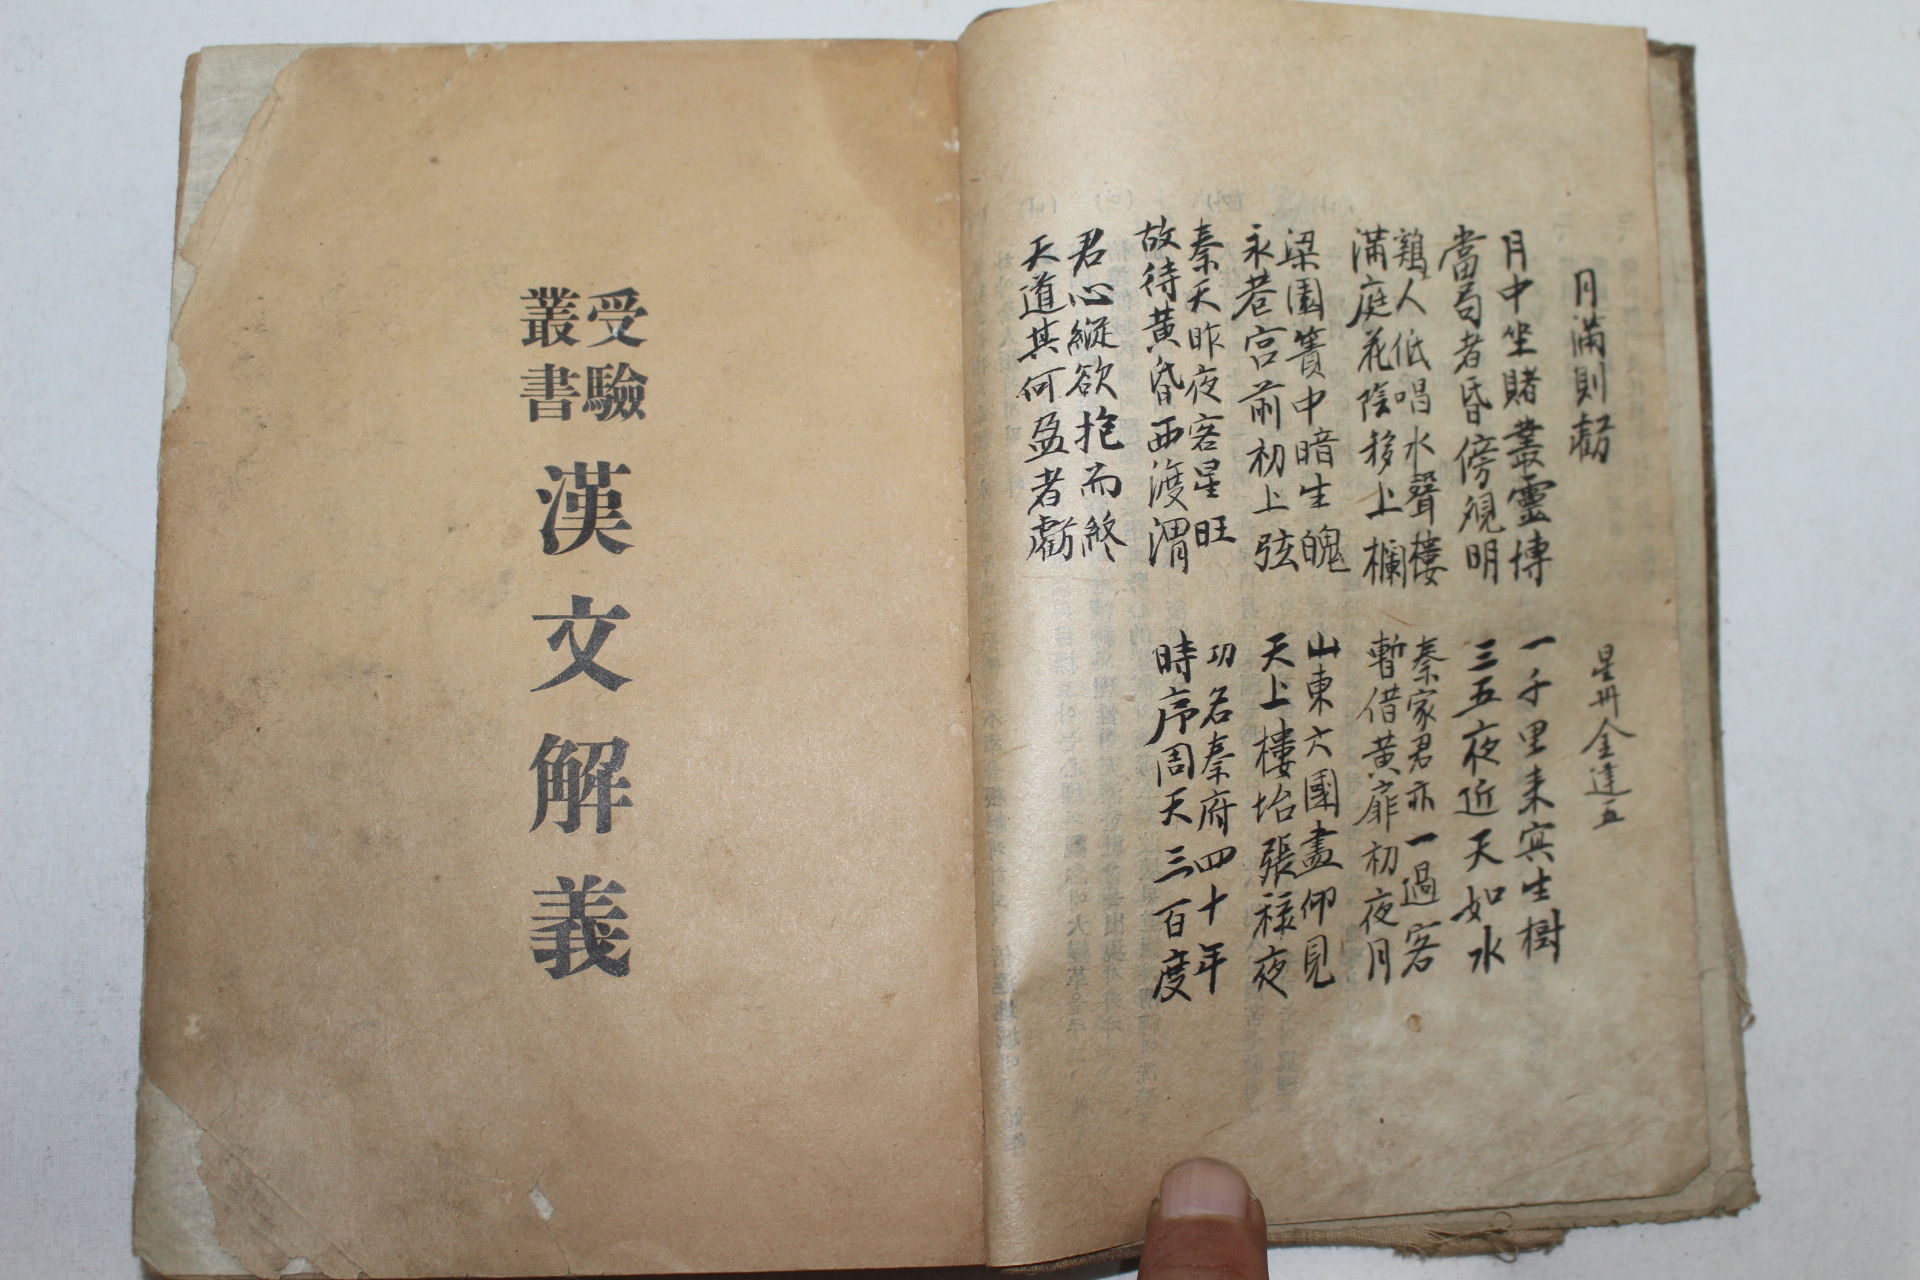 月滿則虧
星州 金達五
月中坐賭叢靈博
一千里来蓂生樹
當局者昏傍覌明
三五夜近天如水
鷄人低唱水聲樓
秦家君亦一過客
滿庭花陰移上欄
暫借黃扉初夜月
梁園簀中暗生魄
山東六國盡仰見
永巷宮前初上弦
天上樓坮張祿夜
秦天昨夜客星旺
功名秦府四十年
故待黃昏西渡渭
時序周天三百度
君心縱欲抱而終
天道其何盈者虧
受驗
叢書
漢文解義